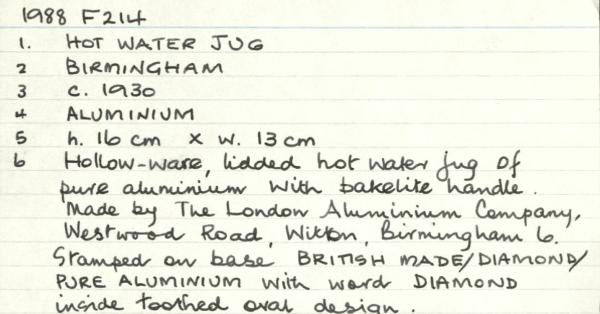 1988 F214
1. HOT WATER JUG
2 BIRMINGHAM
3 c. 1930
4 ALUMINIUM
5 h. 16 cm x w. 13 cm
6 Hollow-ware, lidded hot water jug of
pure aluminium with bakelite handle.
Made by The London Aluminium Company,
Westwood Road, Witton, Birmingham 6.
Stamped on base BRITISH MADE/DIAMOND/
PURE ALUMINIUM with word DIAMOND
inside toothed oval design.